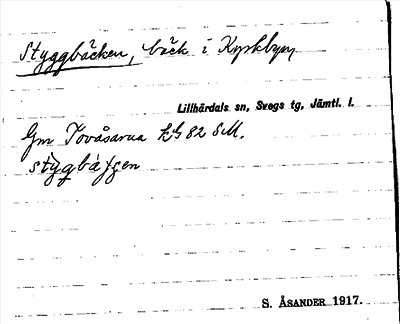 Styggbäcken, bäck i Kyrkbyn
Lillhärdals sn, Svegs tg, Jämtl. l.
Gm Tovåsarna 82 SM.
S. ÅSANDER 1917.